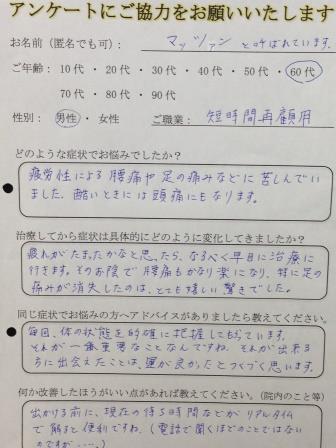 アンケートにご協力をお願いいたします
お名前(匿名でも可): マッツァン と呼ばれています。
ご年齢: 10代 ・ 20代 ・ 30代 ・ 40代 ・ 50代 ・ 60代
70代 ・ 80代 ・ 90代
性別: 男性 ・ 女性 ご職業: 短時間再雇用
どのような症状でお悩みでしたか?
疲労性による腰痛や足の痛みなどに苦しんでい
ました。酷いときには頭痛にもなります。
治療してから症状は具体的にどのように変化してきましたか?
疲れがたまったかなと思ったら、なるべく早目に治療に
行きます。そのお陰で腰痛もかなり楽になり、特に足の
痛みが消失したのは、とても嬉しい驚きでした。
同じ症状でお悩みの方へアドバイスがありましたら教えてください。
毎回、体の状態を的確に把握してもらっています。
それが一番重要なことなんですね。それが出来る
うちに出会えたことは、運が良かったとつくづく思います。
何か改善したほうがいい点があれば教えてください。(院内のこと等)
出かける前に、現在の待ち時間などがリアルタイム
で解ると便利ですね。(電話で聞くほどのことではない
のですが……。)